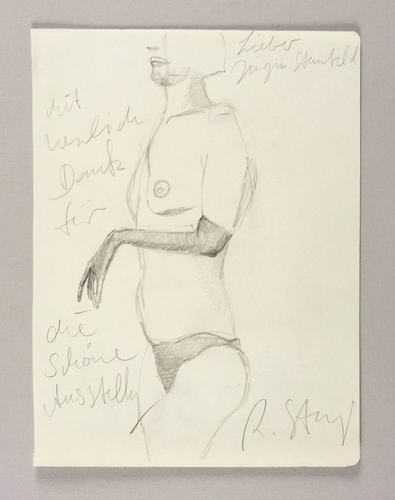 Lieber
Jürgen Steinfeld
mit
herzlichem
Dank
für
die
schöne
Ausstellung
R.